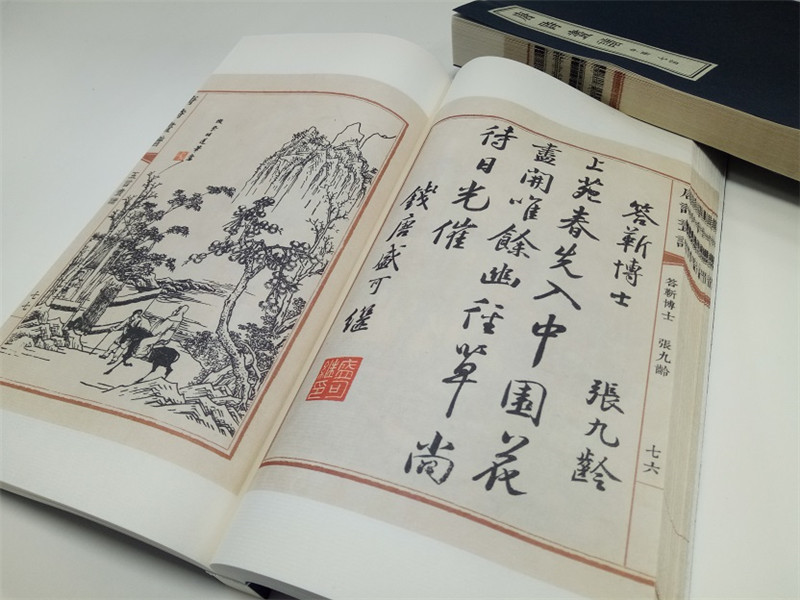 答靳博士 張九齡
七六
答靳博士 張九齡
上苑春先入中園花
盡開唯餘幽徑草尚
待日光催
錢唐盛可繼
盛可繼印